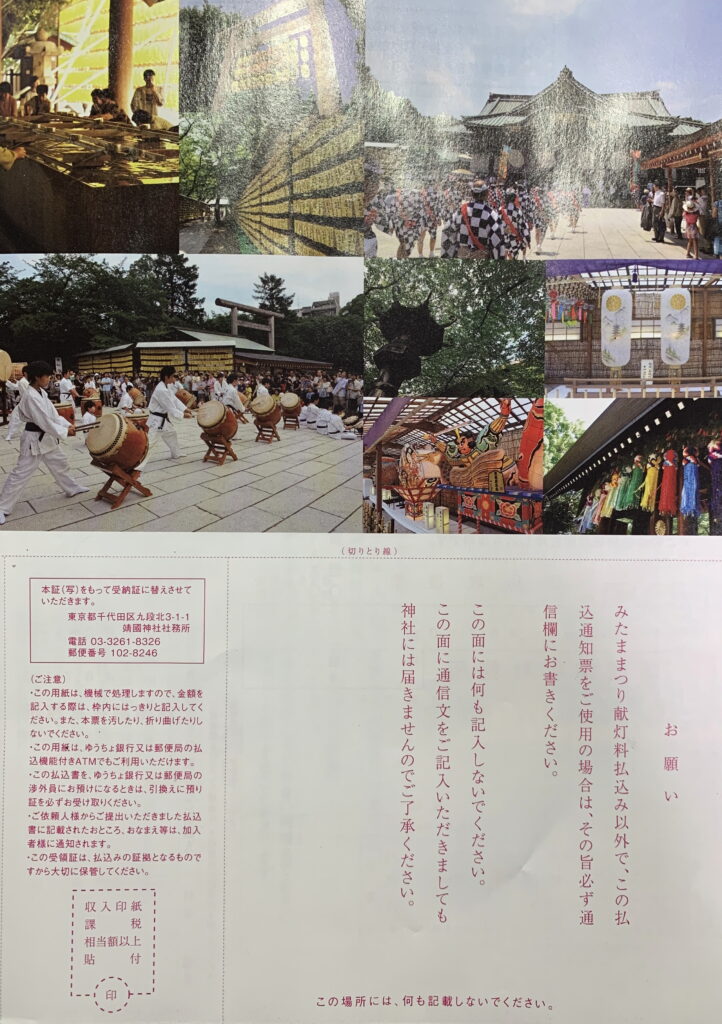 （切りとり線）
本証（写）をもって受納証に替えさせて
いただきます。
東京都千代田区九段北3-1-1
靖國神社社務所
電話 03-3261-8326
郵便番号 102-8246
（ご注意）
・この用紙は、機械で処理しますので、金額を
記入する際は、枠内にはっきりと記入してく
ださい。また、本票を汚したり、折り曲げたりし
ないでください。
・この用紙は、ゆうちょ銀行又は郵便局の払
込機能付きATMでもご利用いただけます。
・この払込書を、ゆうちょ銀行又は郵便局の
渉外員にお預けになるときは、引換えに預り
証を必ずお受け取りください。
・ご依頼人様からご提出いただきました払込
書に記載されたおところ、おなまえ等は、加入
者様に通知されます。
・この受領証は、払込みの証拠となるもので
すから大切に保管してください。
収入印紙
課税
相当額以上
貼付
印
お願い
みたままつり献灯料払込み以外で、この払
込通知票をご使用の場合は、その旨必ず通
信欄にお書きください。
この面には何も記入しないでください。
この面に通信文をご記入いただきましても
神社には届きませんのでご了承ください。
この場所には、何も記載しないでください。